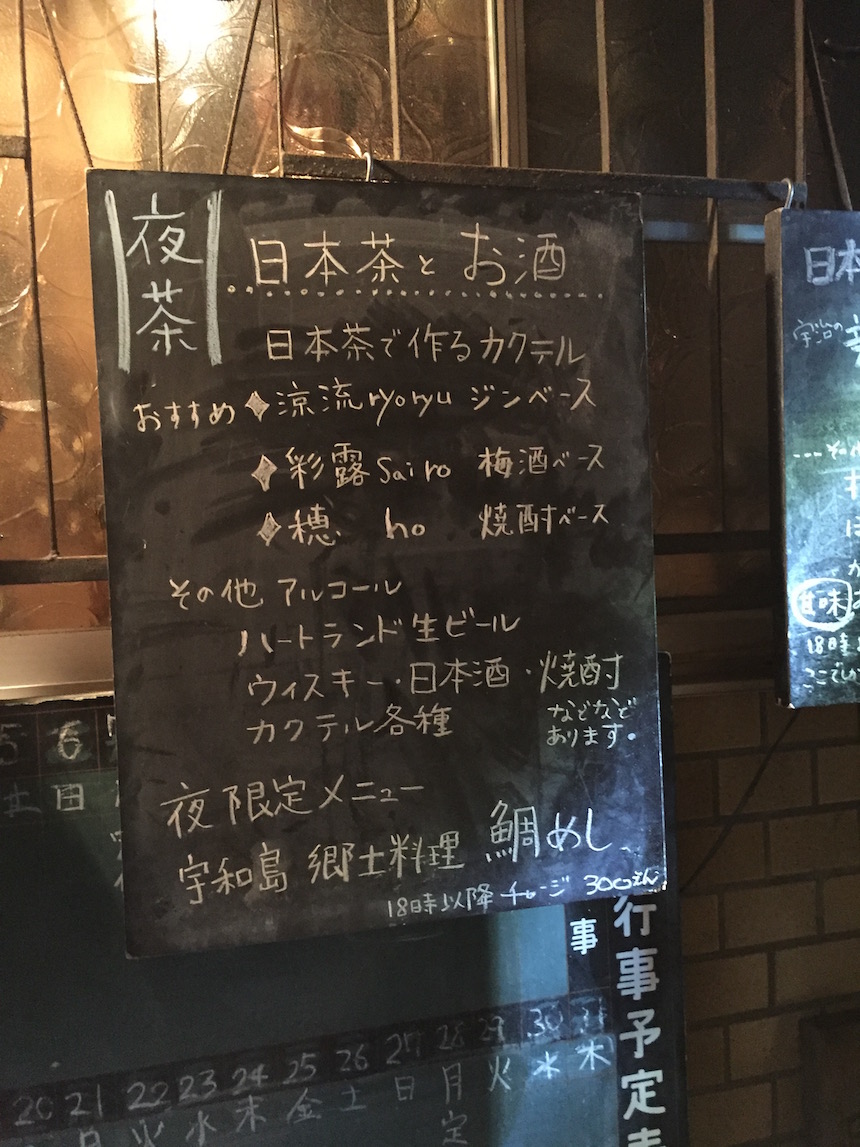 夜茶
日本茶と お酒
日本茶で作るカクテル
おすすめ ◆涼流ryoryu ジンベース
◆彩露Sairo 梅酒ベース
◆穂 ho 焼酎ベース
その他 アルコール
ハートランド生ビール
ウィスキー・日本酒・焼酎
カクテル各種 などなど
あります。
夜限定メニュー
宇和島 郷土料理 鯛めし
18時以降 チャージ 300えん
日本
宇治の
その他
甘味
18時
5 6
土 日
事
行事予定表
20 21 22 23 24 25 26 27 28 29 30 31
日 火 水 木 金 土 日 月 火 水 木
定